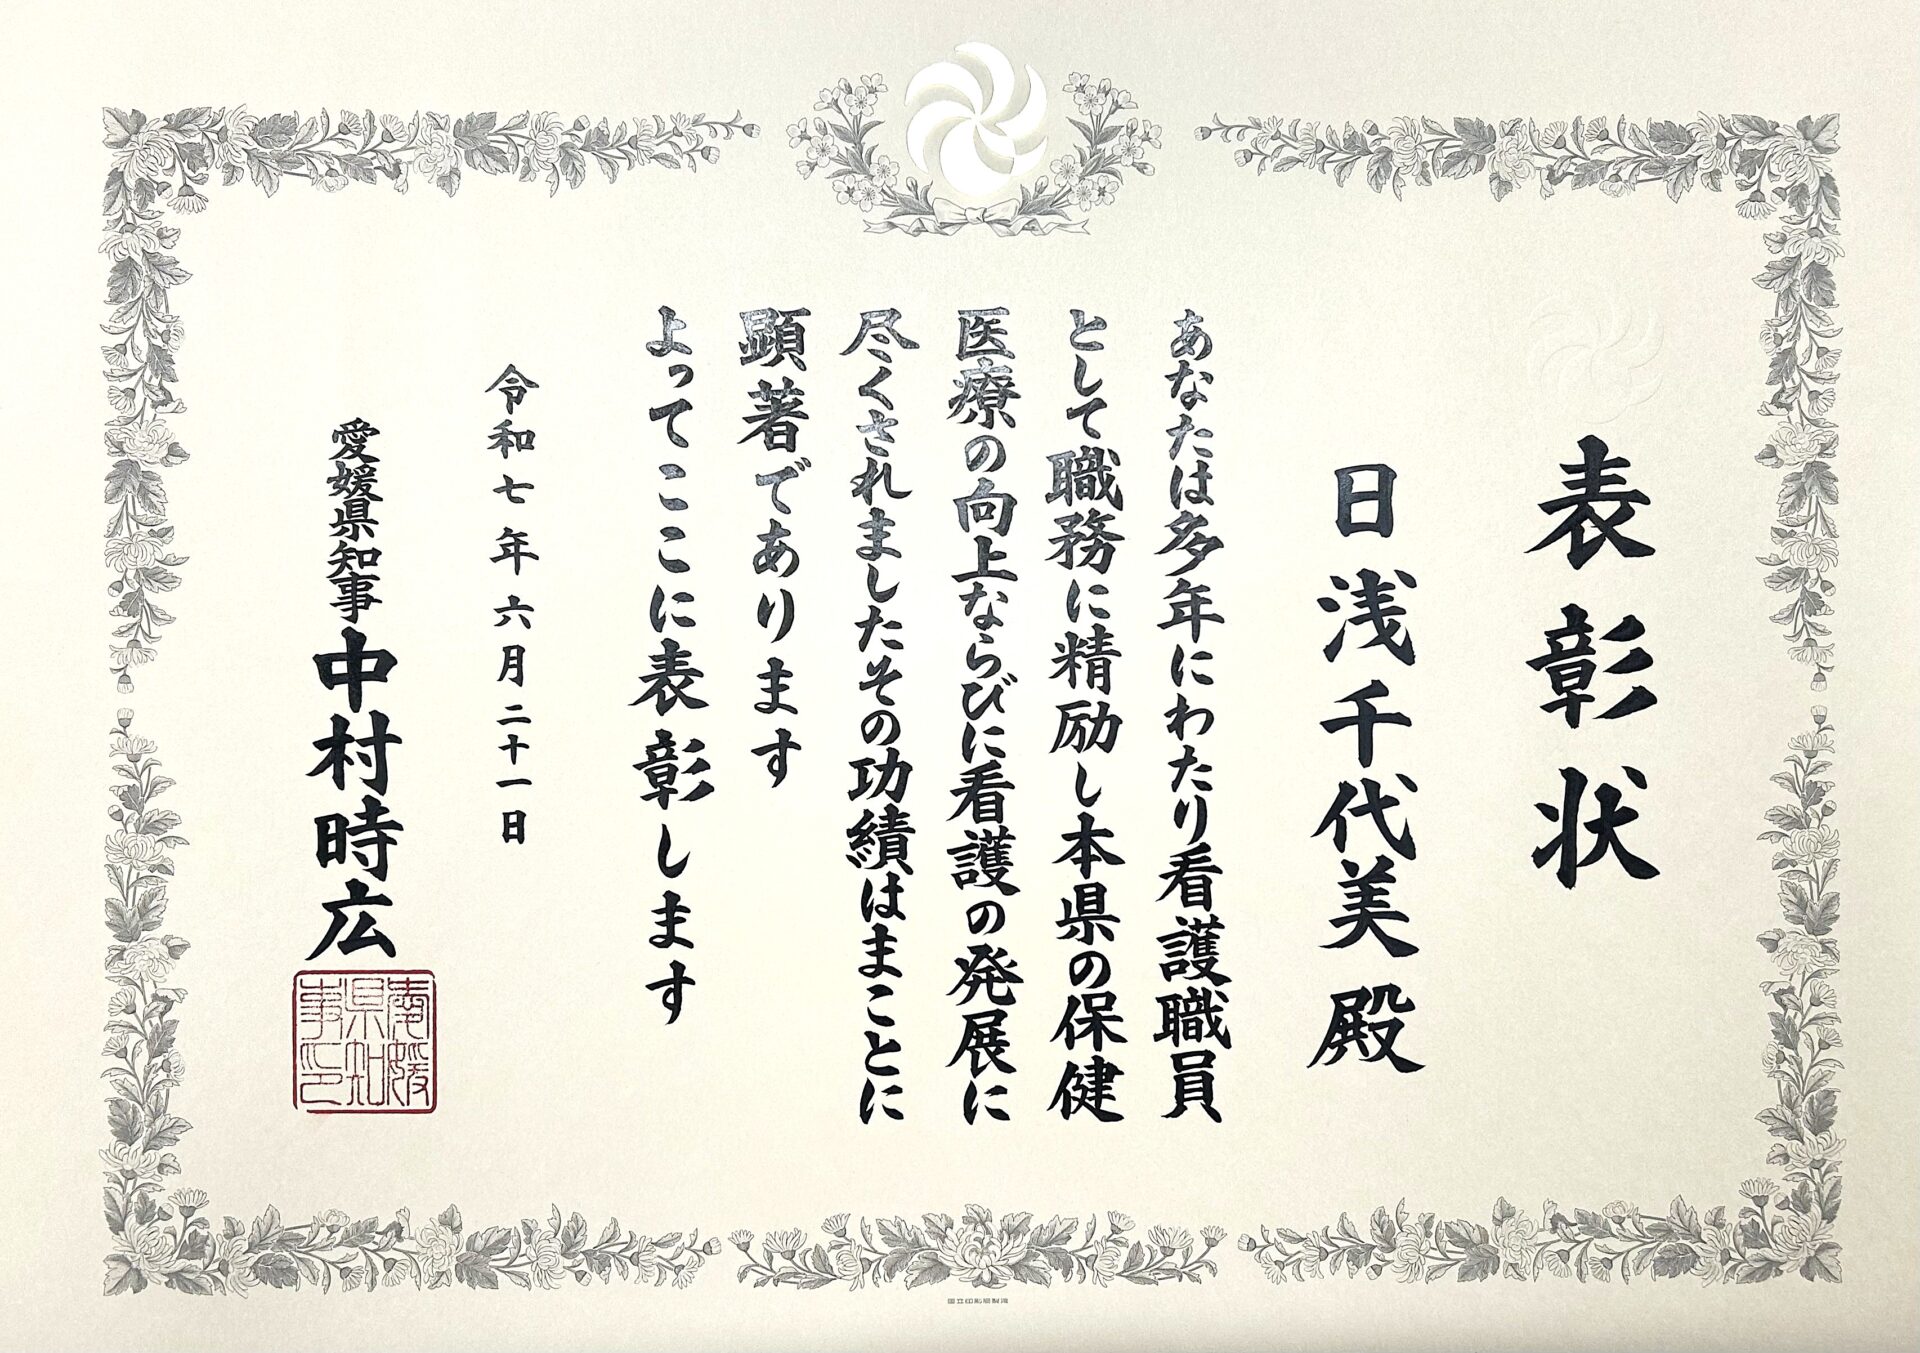 表彰状
日浅千代美殿
あなたは多年にわたり看護職員
として職務に精励し本県の保健
医療の向上ならびに看護の発展に
尽くされましたその功績はまことに
顕著であります
よってここに表彰します
令和七年六月二十一日
愛媛県知事中村時広
愛媛県知事印
国立印刷局製造